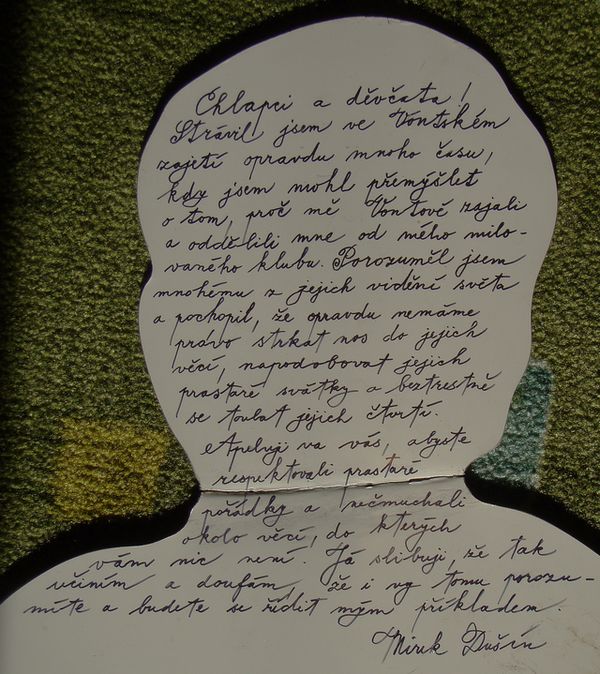 Chlapci a děvčata!
Strávil jsem ve Vontském
zajetí opravdu mnoho času,
kdy jsem mohl přemýšlet
o tom, proč mě Vontové zajali
a oddělili mne od mého milo-
vaného klubu. Porozuměl jsem
mnohému z jejich vidění světa
a pochopil, že opravdu nemáme
právo strkat nos do jejich
věcí, napodobovat jejich
prastaré svátky a beztrestně
se toulat jejich čtvrtí.
Apeluji na vás, abyste
respektovali prastaré
pořádky a nečmuchali
okolo věcí, do kterých
vám nic není. Já slibuji, že tak
učiním a doufám, že i vy tomu porozu-
míte a budete se řídit mým příkladem.
Mirek Dušín